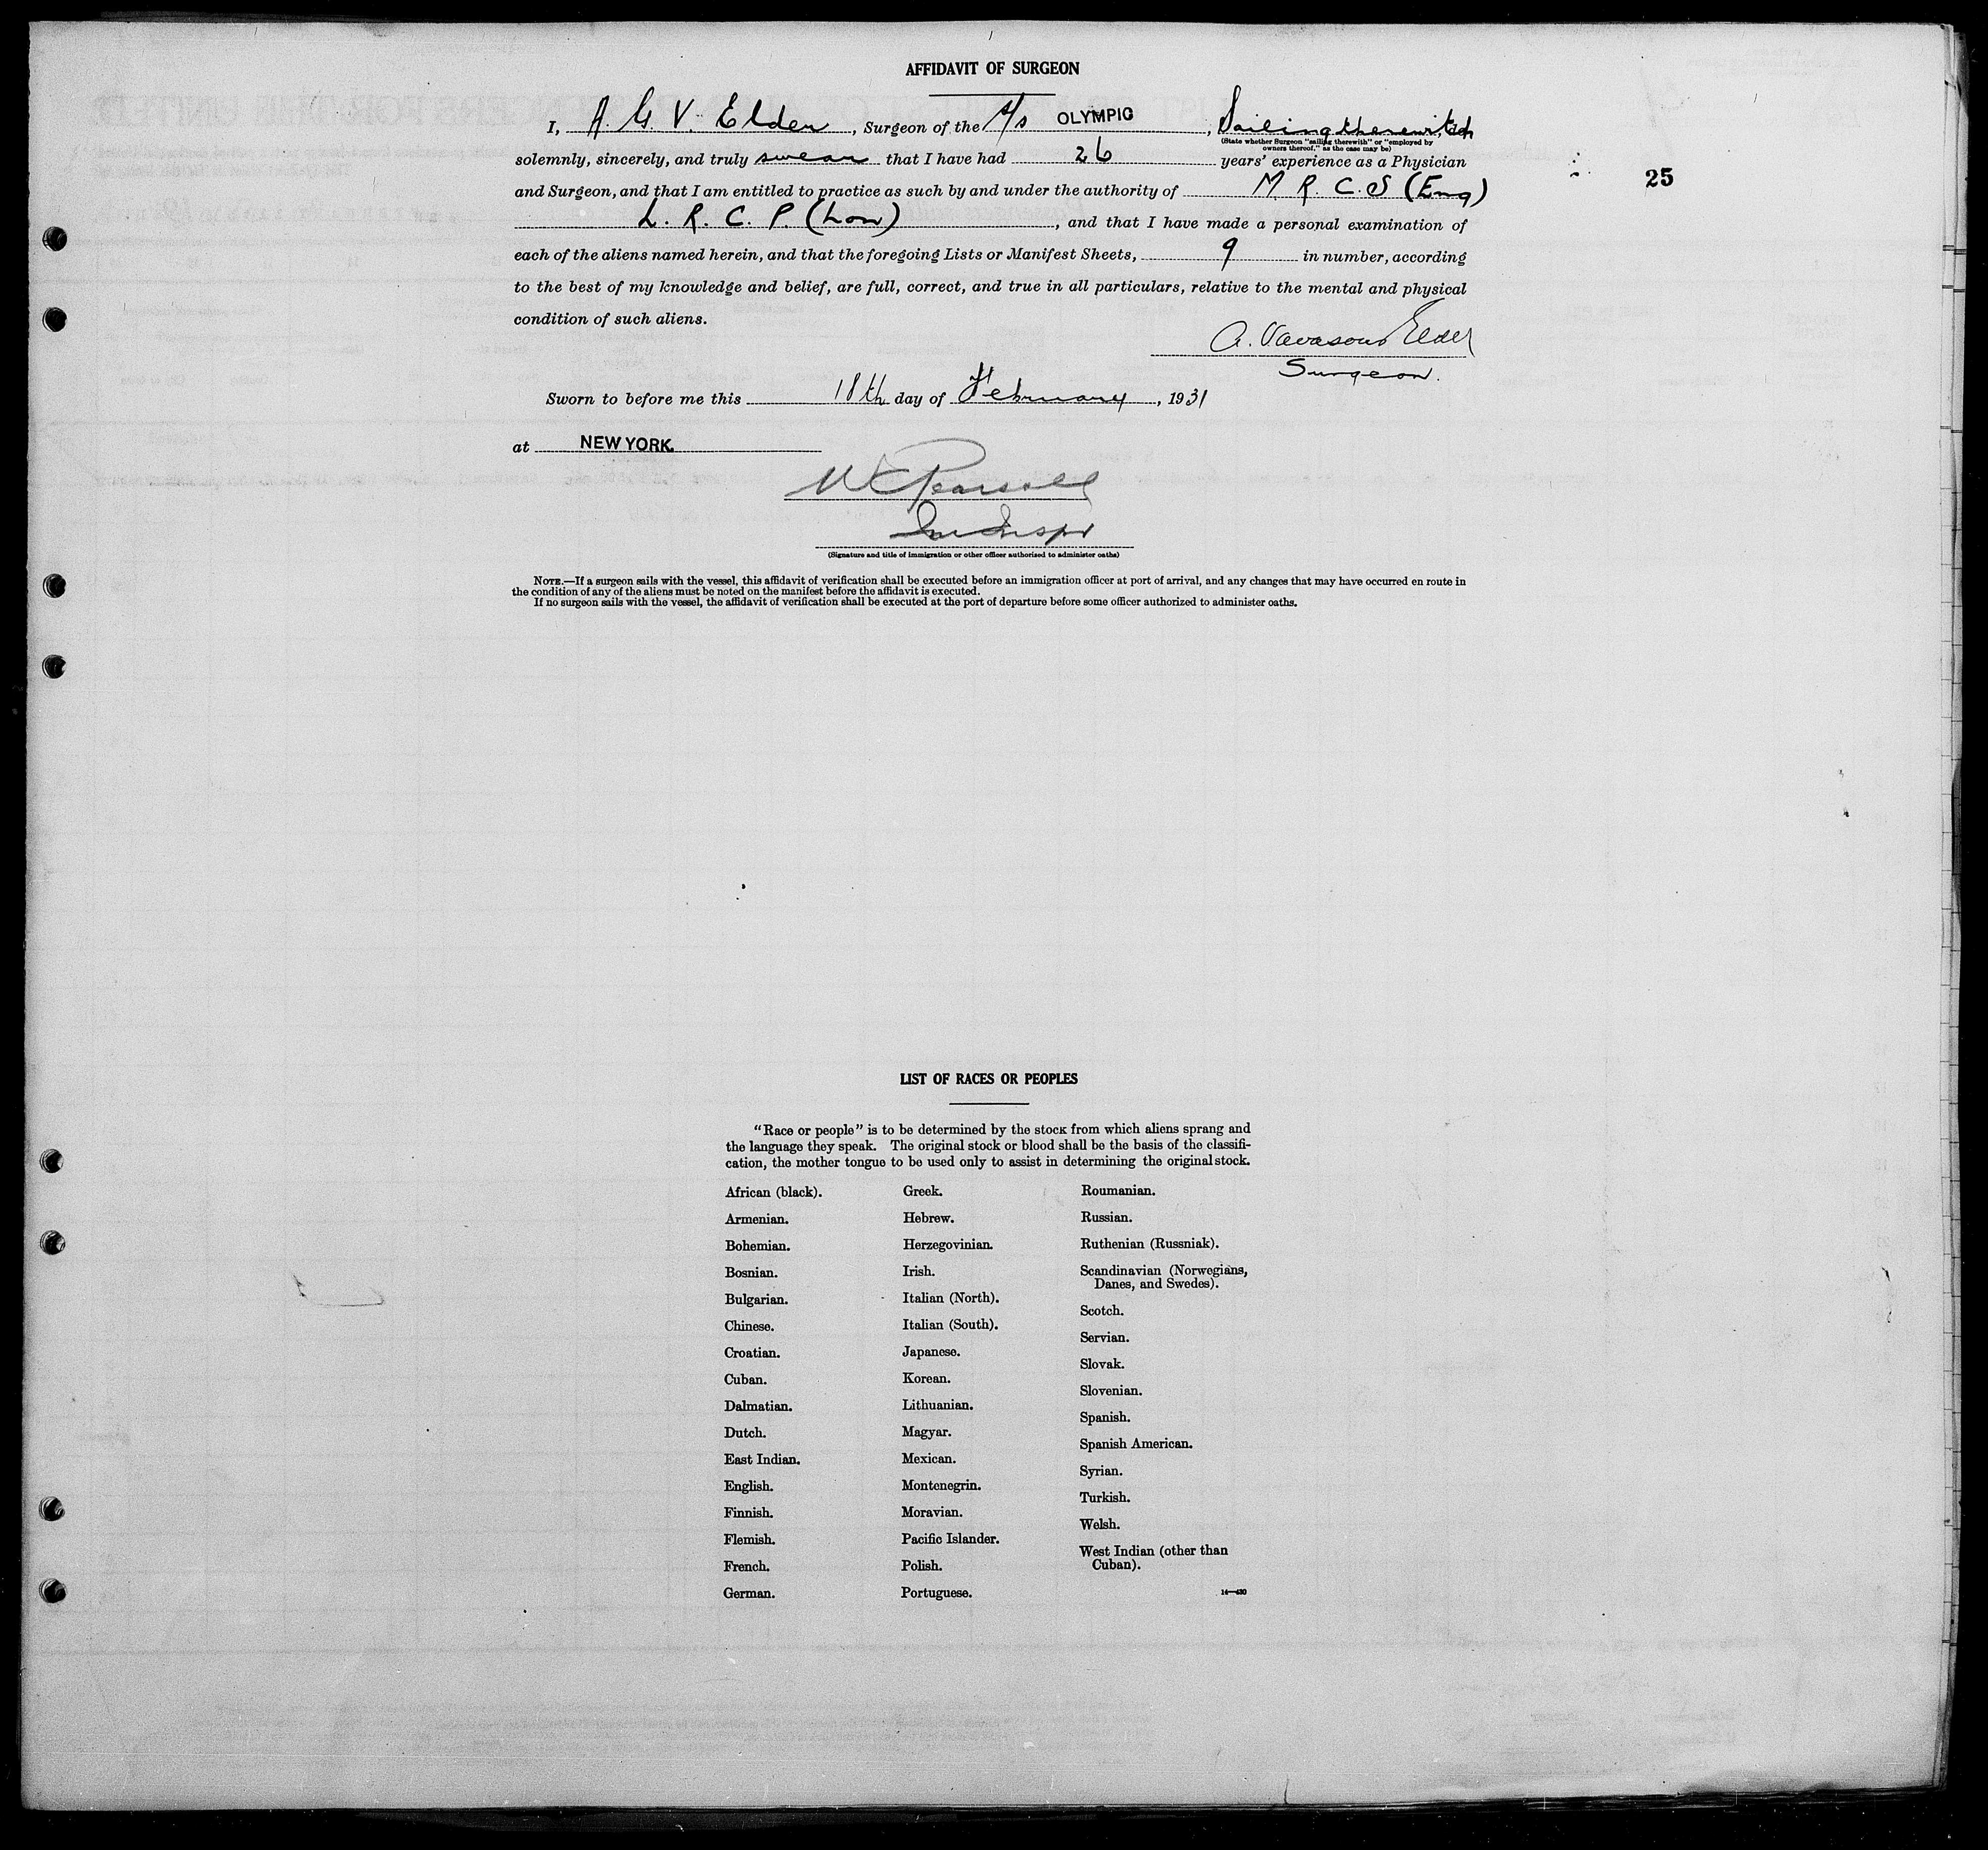 AFFIDAVIT OF SURGEON
I, A. G. V. Elder, Surgeon of the S/s OLYMPIC, Sailing therewith, do
(State whether Surgeon "sailing therewith" or "employed by
owners thereof," as the case may be)
solemnly, sincerely, and truly swear that I have had 26 years' experience as a Physician
25
and Surgeon, and that I am entitled to practice as such by and under the authority of M. R. C. S (Eng)
L. R. C. P. (Lon), and that I have made a personal examination of
each of the aliens named herein, and that the foregoing Lists or Manifest Sheets, 9 in number, according
to the best of my knowledge and belief, are full, correct, and true in all particulars, relative to the mental and physical
condition of such aliens.
A. Vavasour Elder
Surgeon.
Sworn to before me this 18th day of February, 1931
at NEW YORK.
Pearsall
(Signature and title of immigration or other officer authorized to administer oaths)
NOTE.—If a surgeon sails with the vessel, this affidavit of verification shall be executed before an immigration officer at port of arrival, and any changes that may have occurred en route in
the condition of any of the aliens must be noted on the manifest before the affidavit is executed.
If no surgeon sails with the vessel, the affidavit of verification shall be executed at the port of departure before some officer authorized to administer oaths.
LIST OF RACES OR PEOPLES
"Race or people" is to be determined by the stock from which aliens sprang and
the language they speak. The original stock or blood shall be the basis of the classifi-
cation, the mother tongue to be used only to assist in determining the original stock.
African (black).
Armenian.
Bohemian.
Bosnian.
Bulgarian.
Chinese.
Croatian.
Cuban.
Dalmatian.
Dutch.
East Indian.
English.
Finnish.
Flemish.
French.
German.
Greek.
Hebrew.
Herzegovinian.
Irish.
Italian (North).
Italian (South).
Japanese.
Korean.
Lithuanian.
Magyar.
Mexican.
Montenegrin.
Moravian.
Pacific Islander.
Polish.
Portuguese.
Roumanian.
Russian.
Ruthenian (Russniak).
Scandinavian (Norwegians,
Danes, and Swedes).
Scotch.
Servian.
Slovak.
Slovenian.
Spanish.
Spanish American.
Syrian.
Turkish.
Welsh.
West Indian (other than
Cuban).
14—430